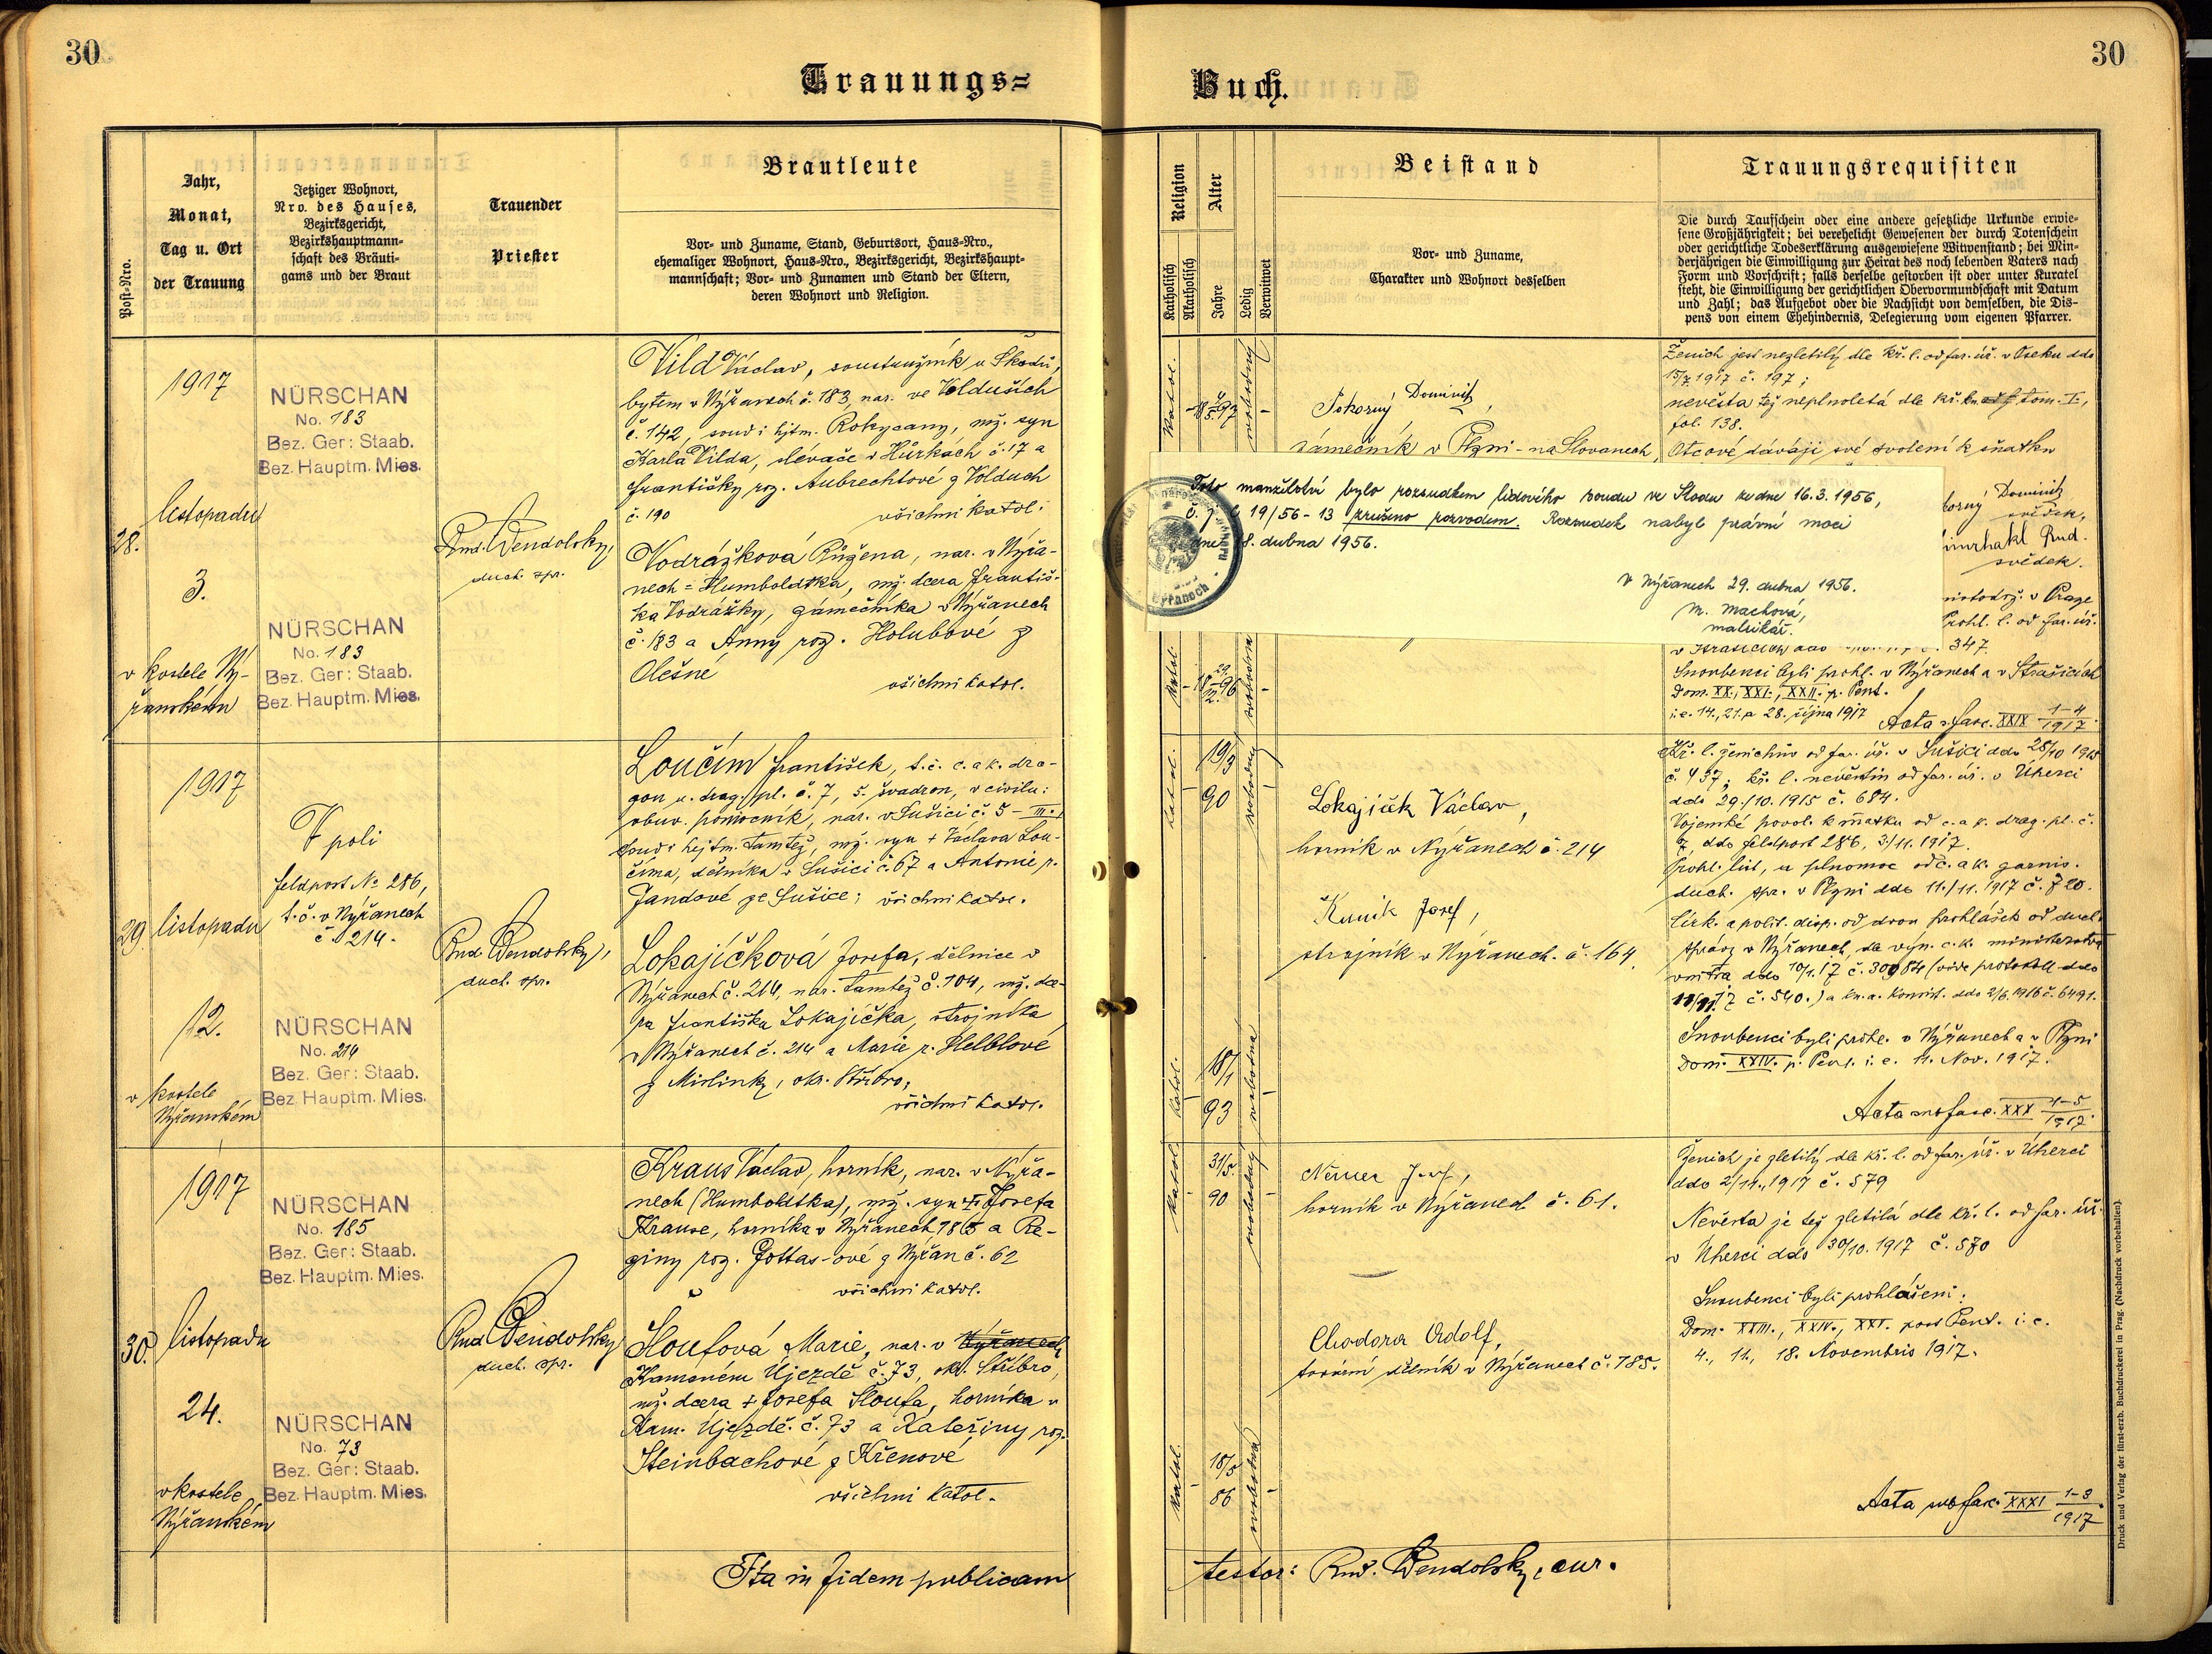 30
30
Trauungs=
Buch.
Post-Nro.
Jahr,
Monat,
Tag u. Ort
der Trauung
Jetziger Wohnort,
Nro. des Hauses,
Bezirksgericht,
Bezirkshauptmann-
schaft des Bräuti-
gams und der Braut
Trauender
Priester
Brautleute
Vor- und Zuname, Stand, Geburtsort, Haus-Nro.,
ehemaliger Wohnort, Haus-Nro., Bezirksgericht, Bezirkshaupt-
mannschaft; Vor- und Zunamen und Stand der Eltern,
deren Wohnort und Religion.
Religion
Katholisch
Akatholisch
Alter
Jahre
Ledig
Verwitwet
Beistand
Vor- und Zuname,
Charakter und Wohnort desselben
Trauungsrequisiten
Die durch Taufschein oder eine andere gesetzliche Urkunde erwie-
sene Großjährigkeit; bei verehelicht Gewesenen der durch Totenschein
oder gerichtliche Todeserklärung ausgewiesene Witwenstand; bei Min-
derjährigen die Einwilligung zur Heirat des noch lebenden Vaters nach
Form und Vorschrift; falls derselbe gestorben ist oder unter Kuratel
steht, die Einwilligung der gerichtlichen Obervormundschaft mit Datum
und Zahl; das Aufgebot oder die Nachsicht von demselben, die Dis-
pens von einem Ehehindernis, Delegierung vom eigenen Pfarrer.
28.
1917
listopadu
3.
v kostele Ný-
řanském
NÜRSCHAN
No. 183
Bez. Ger: Staab.
Bez. Hauptm. Mies.
NÜRSCHAN
No. 183
Bez. Ger: Staab.
Bez. Hauptm. Mies.
Rud. Wendolsky,
duch. spr.
Vild Václav, soustružník u Škodů,
bytem v Nýřanech č. 183, nar. ve Volduších
č. 142, soud i hjtm. Rokycany, mž. syn
Karla Vilda, slévače v Hůrkách č. 17 a
Františky roz. Aubrechtové z Volduch
č. 190 všichni katol.
Vodrážková Růžena, nar. v Nýřa-
nech = Humboldtka, mž. dcera Františ-
ka Vodrážky, zámečníka v Nýřanech
č. 183 a Anny roz. Holubové z
Olešné
všichni katol.
katol.
svobodný
Pokorný Dominik,
zámečník v Plzni - na Slovanech,
Ženich jest nezletilý dle kř. l. od far. úř. v Oseku ddo
15/7 1917 č. 197;
nevěsta též neplnoletá dle kř. kn. tom. I,
fol. 138.
Otcové dávají své svolení k sňatku
Toto manželství bylo rozsudkem lidového soudu ve Stodu ze dne 16.3.1956,
č. j. C 19/56-13 zrušeno rozvodem. Rozsudek nabyl právní moci
dne 18. dubna 1956.
V Nýřanech 29. dubna 1956.
M. Machová,
matrikář.
korný Dominik
svědek,
Rud.
svědek.
v Praze
Prohl. l. od far. úř.
347.
katol.
svobodna
Snoubenci byli prohl. v Nýřanech a v Strašicích
Dom. XX., XXI., XXII. p. Pent.
i. e. 14., 21. a 28. října 1917
Acta s. fasc. XXIX 1-4/1917.
29.
1917
listopadu
12.
v kostele
Nýřanském
V poli
feldpost № 286,
t. č. v Nýřanech
č. 214.
NÜRSCHAN
No. 214
Bez. Ger: Staab.
Bez. Hauptm. Mies.
Rud Wendolsky,
duch. spr.
Loučím František, t. č. c. a k. dra-
gon u. drag. pl. č. 7, 5. švadron, v civilu:
obuv. pomocník, nar. v Sušici č. 5 - III.,
soud i hejtm. tamtéž, mž. syn + Václava Lou-
číma, dělníka v Sušici č. 67 a Antonie r.
Jandové ze Sušice; všichni katol.
Lokajíčková Josefa, dělnice v
Nýřanech č. 214, nar. tamtéž č. 104, mž. dce-
ra Františka Lokajíčka, strojníka
v Nýřanech č. 214 a Marie r. Helblové
z Mirlinky, okr. Stříbro,
všichni katol.
katol.
19/3
90
svobodný
katol.
18/1
93
svobodna
Lokajíček Václav,
horník v Nýřanech č. 214
Kuník Josef,
strojník v Nýřanech č. 164.
Kř. l. ženichův od far. úř. v Sušici ddo 28/10 1915
č. 437; kř. l. nevěstin od far. úř. v Úherci
ddo 29/10. 1915 č. 684.
Vojenské povol. k sňatku od c. a k. drag. pl. č.
7, ddo feldpost 286, 3/11. 1917.
Prohl. list, a plnomoc od c. a k. garnis.
duch. spr. v Plzni ddo 11./11. 1917 č. 720.
Círk. a polit. disp. od dvou prohlášek od duch.
správy v Nýřanech, dle výn. c. k. ministerstva
vnitra ddo 10/1. 17 č. 30984 (vide protokoll ddo
č. 540.) a kn. a. Konsist. ddo 2/6. 1916 č. 6491.
Snoubenci byli prohl. v Nýřanech a v Plzni
Dom. XXIV. p. Pent. i. e. 11. Nov. 1917.
Acta sub fasc. XXX 1-5/1917.
30.
1917
listopadu
24.
v kostele
Nýřanském
NÜRSCHAN
No. 185
Bez. Ger: Staab.
Bez. Hauptm. Mies.
NÜRSCHAN
No. 73
Bez. Ger: Staab.
Bez. Hauptm. Mies.
Rud Wendolsky
duch. spr.
Kraus Václav, horník, nar. v Nýřa-
nech (Humboldtka), mž. syn + Josefa
Krause, horníka v Nýřanech, 185 a Re-
giny roz. Jottas-ové z Nýřan č. 62
všichni katol.
Šloufová Marie, nar. v Nýřanech
Kamenném Újezdě č. 73, okr. Stříbro,
mž. dcera + Josefa Šloufa, horníka v
Kam. Újezdě č. 73 a Kateřiny roz.
Steinbachové z Křenové
všichni katol.
katol.
31/5.
90
svobodný
katol.
18/5
86
svobodná
Němec Josef,
horník v Nýřanech č. 61.
Chodora Adolf,
tovární dělník v Nýřanech č. 185.
Ženich je zletilý dle kř. l. od far. úř. v Úherci
ddo 2/11., 1917 č. 579
Nevěsta je též zletilá dle kř. l. od far. úř.
v Úherci ddo 30/10. 1917 č. 570
Snoubenci byli prohlášeni.
Dom. XXIII., XXIV., XXV. post Pent. i. e.
4., 11., 18. Novembris 1917.
Acta sub fasc. XXXI 1-3/1917.
Ita in fidem publicam
testor: Rud. Wendolsky, cur.
Druck und Verlag der fürst-erzb. Buchdruckerei in Prag. (Nachdruck vorbehalten).